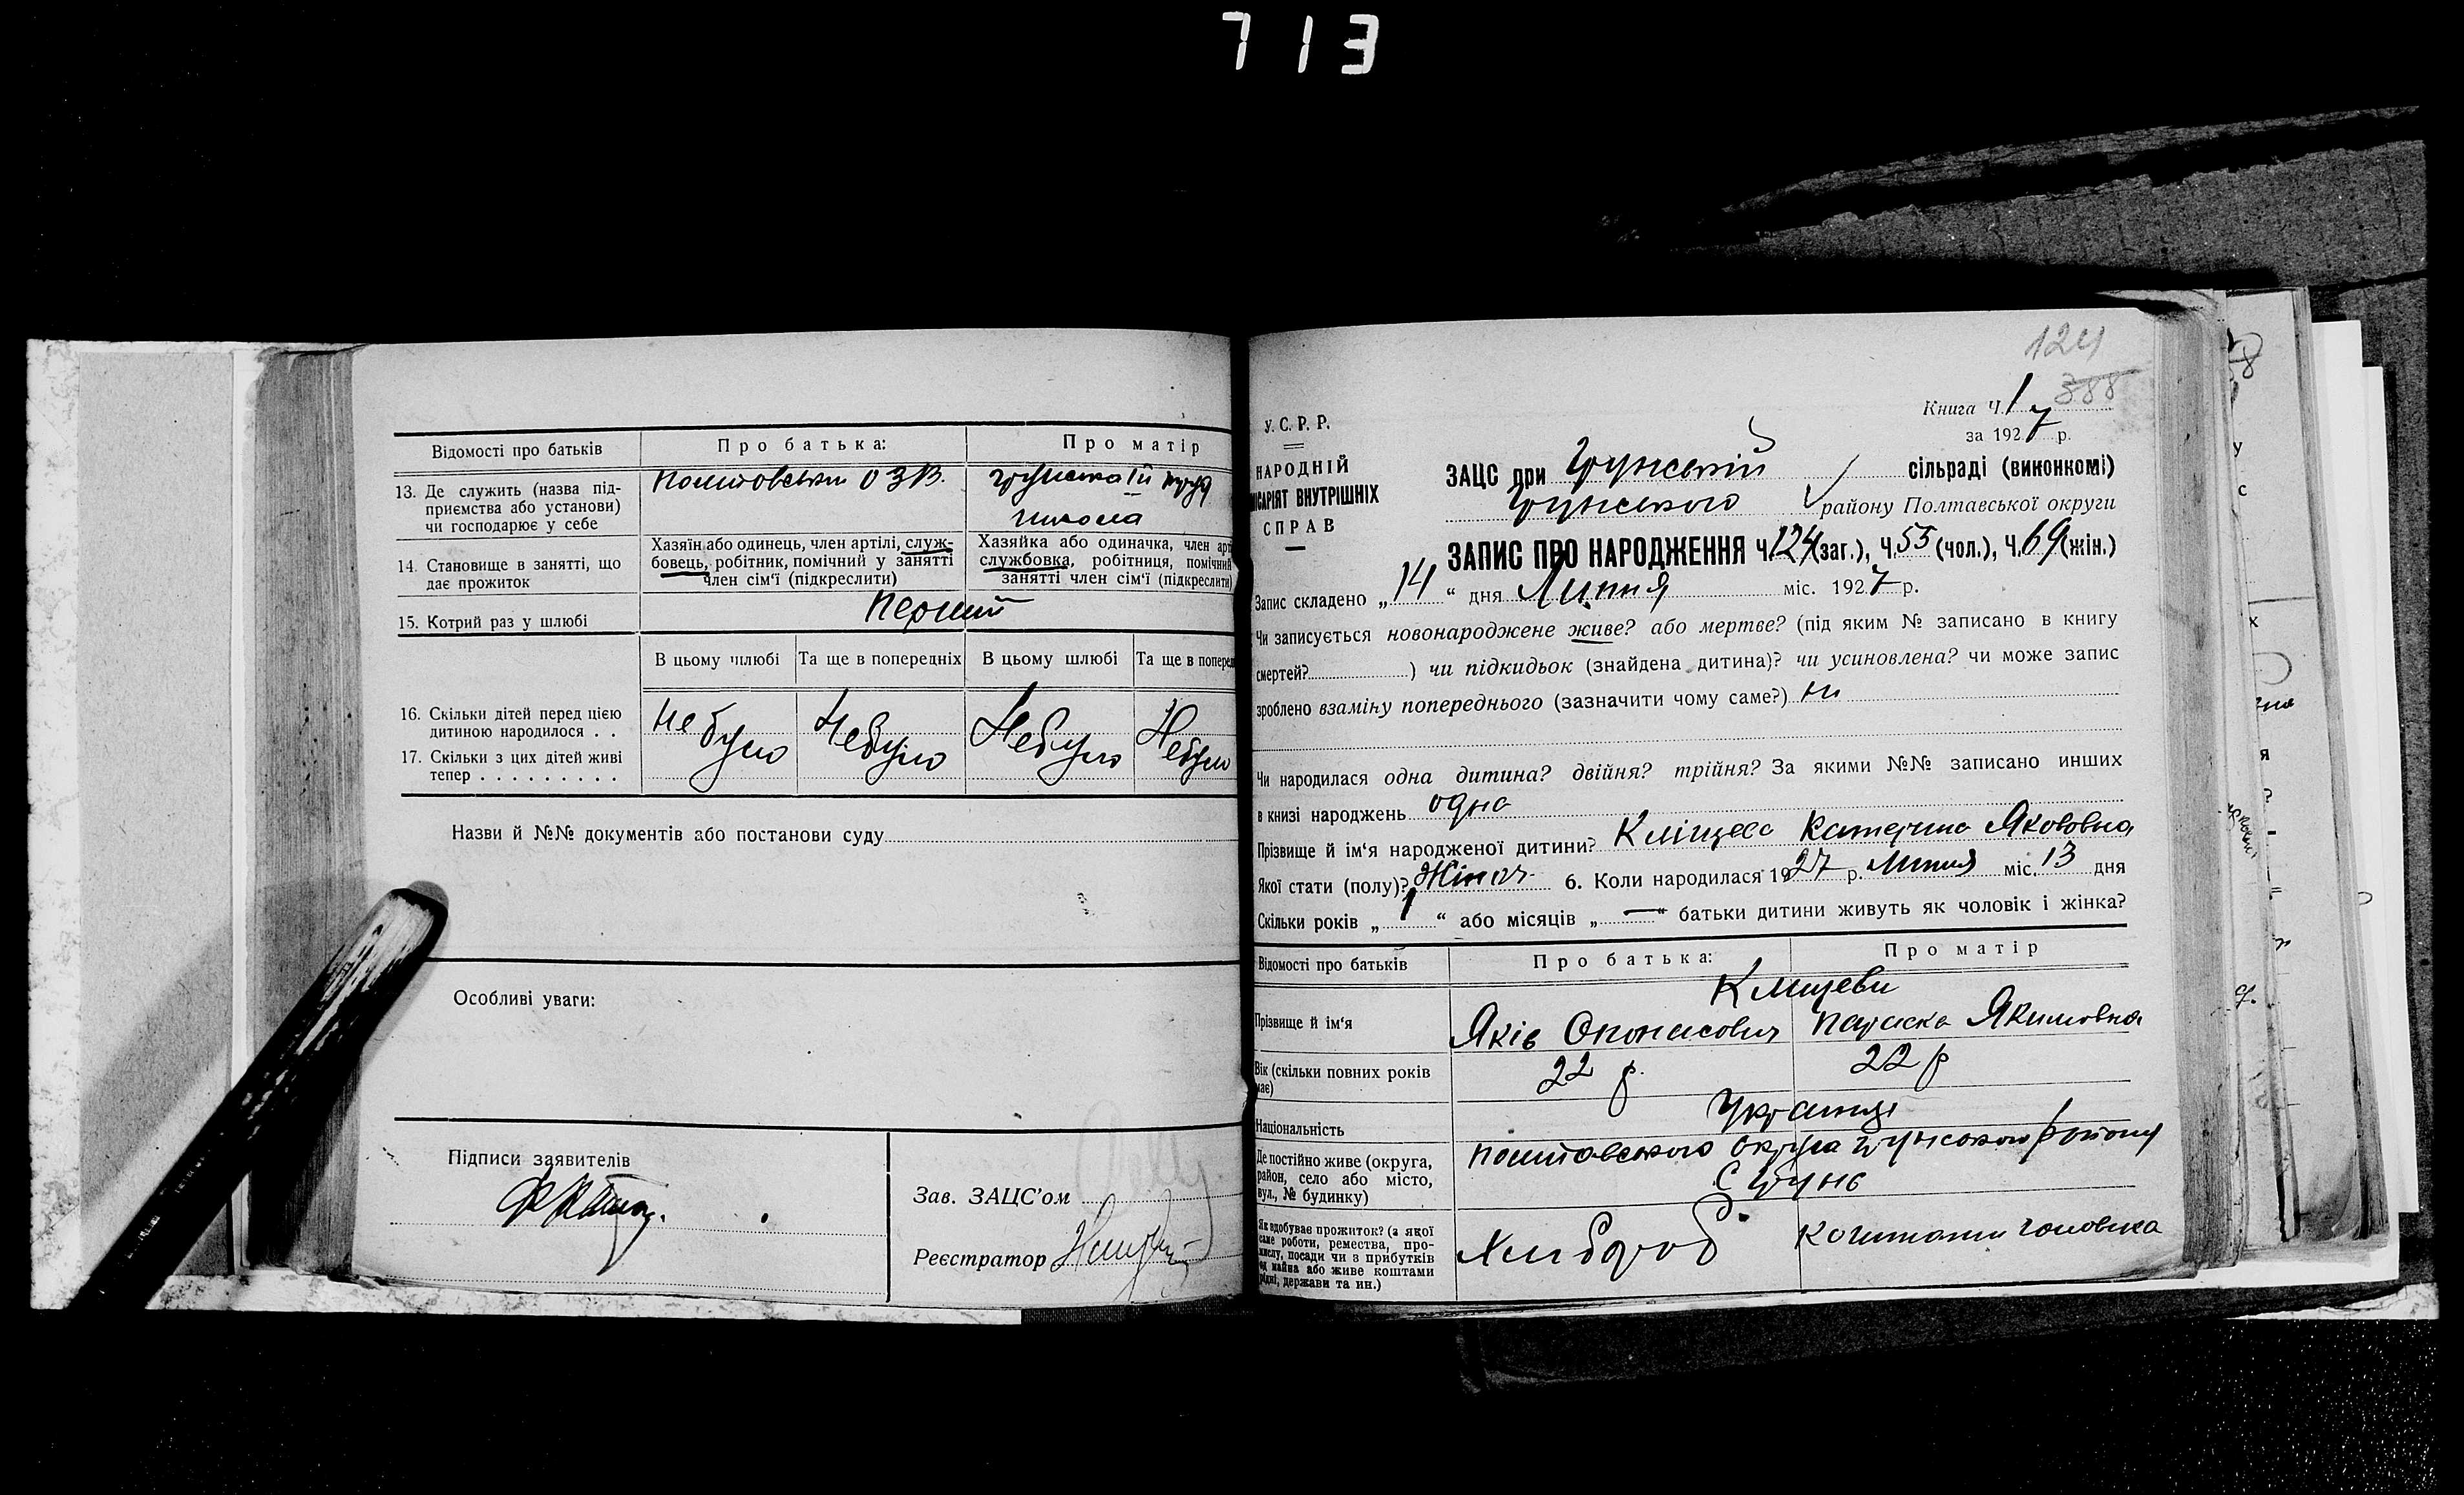 713
Відомості про батьків
Про батька:
Про матір
13. Де служить (назва під-
приємства або установи)
чи господарює у себе
Полтовським ОЗВ.
школа
14. Становище в занятті, що
дає прожиток
Хазяїн або одинець, член артілі, служ-
бовець, робітник, помічний у занятті
член сім'ї (підкреслити)
Хазяйка або одиначка, член арт
службовка, робітниця, помічний
занятті член сім'ї (підкреслити)
15. Котрий раз у шлюбі
Перший
В цьому шлюбі
Та ще в попередніх
В цьому шлюбі
Та ще в поперед
16. Скільки дітей перед цією
дитиною народилося . .
17. Скільки з цих дітей живі
тепер . . . . . . . . .
не було
Небуло
Небуло
Небуло
Назви й №№ документів або постанови суду
Особливі уваги:
Підписи заявителів
Зав. ЗАЦС'ом
Реєстратор
124
388
Книга Ч. 1
за 1927 р.
У.С.Р.Р.
НАРОДНІЙ
ІСАРІЯТ ВНУТРІШНІХ
СПРАВ
ЗАЦС при Грунській сільраді (виконкомі)
Грунського району Полтавської округи
ЗАПИС ПРО НАРОДЖЕННЯ Ч. 124 (заг.), Ч. 55 (чол.), Ч. 69 (жін.)
Запис складено „14“ дня Липня міс. 1927 р.
Чи записується новонароджене живе? або мертве? (під яким № записано в книгу
смертей? ) чи підкидьок (знайдена дитина)? чи усиновлена? чи може запис
зроблено взаміну попереднього (зазначити чому саме?) ні
Чи народилася одна дитина? двійня? трійня? За якими №№ записано инших
в книзі народжень одна
Прізвище й ім'я народженої дитини? Кліщева Катерина Якововна
Якої стати (полу)? Жіноч. 6. Коли народилася 1927 р. Липня міс. 13 дня
Скільки років „1“ або місяців „—“ батьки дитини живуть як чоловік і жінка?
Відомості про батьків
Про батька:
Про матір
Кліщеви
Прізвище й ім'я
Яків Опонасович
Параска Якимовна
Вік (скільки повних років
має)
22 р.
22 р
Національність
Українці
Де постійно живе (округа,
район, село або місто,
вул., № будинку)
Полтавського округа Грунського району
С Грунь
Як здобуває прожиток? (з якої
саме роботи, ремества, про-
мислу, посади чи з прибутків
од майна або живе коштами
рідні, держави та ин.)
Хлибороб
Коштами чоловіка